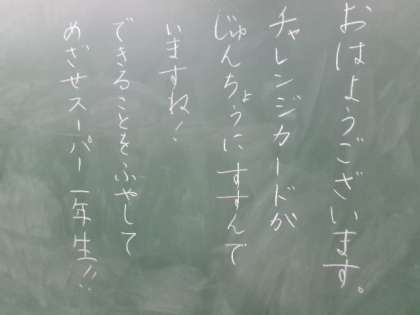 おはようございます。
チャレンジカードが
じゅんちょうにすすんで
いますね!
できることをふやして
めざせスーパー一年生!!